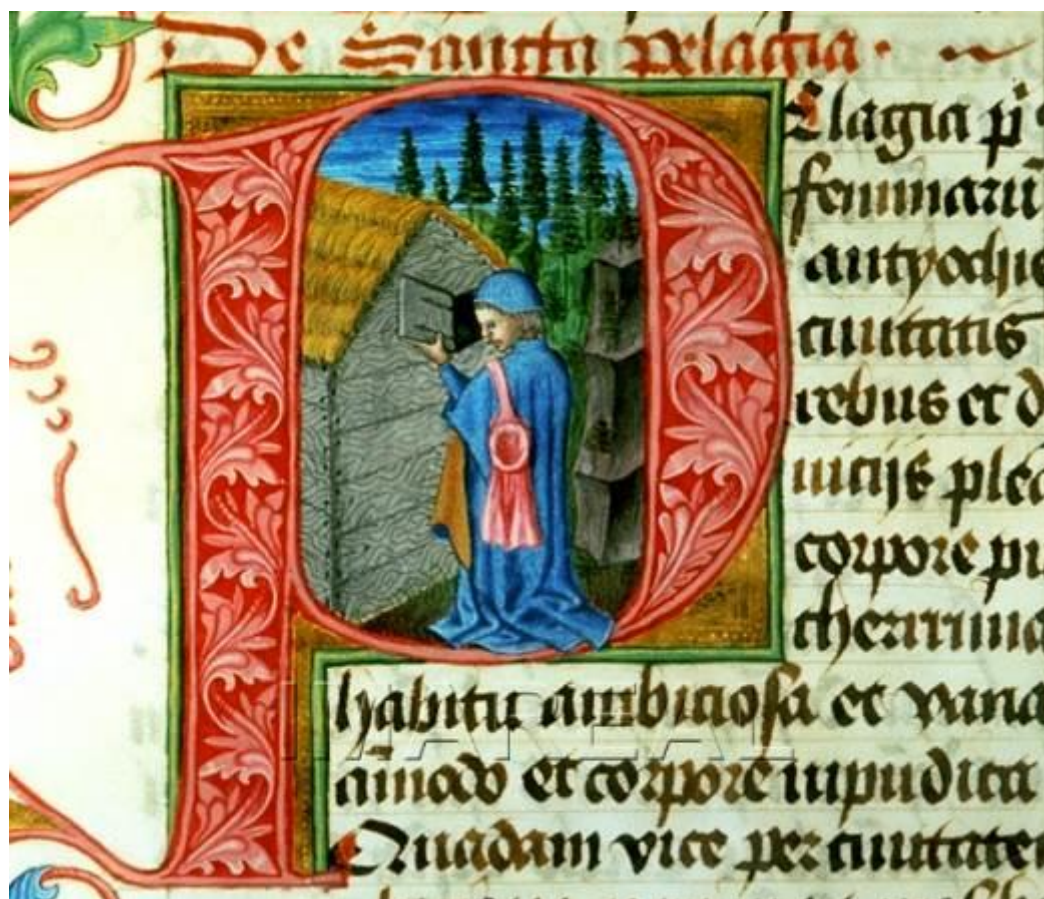 De Sancta Pelagia.
Elagia p̄
feminarū
antyochie
ciuitatis
rebus et d
uicijs ple
corpore pu
cherrima
habitu ambiciosa et vana
aīmodo et corpore inpudica
Quadam vice per ciuitate
IMAREAL